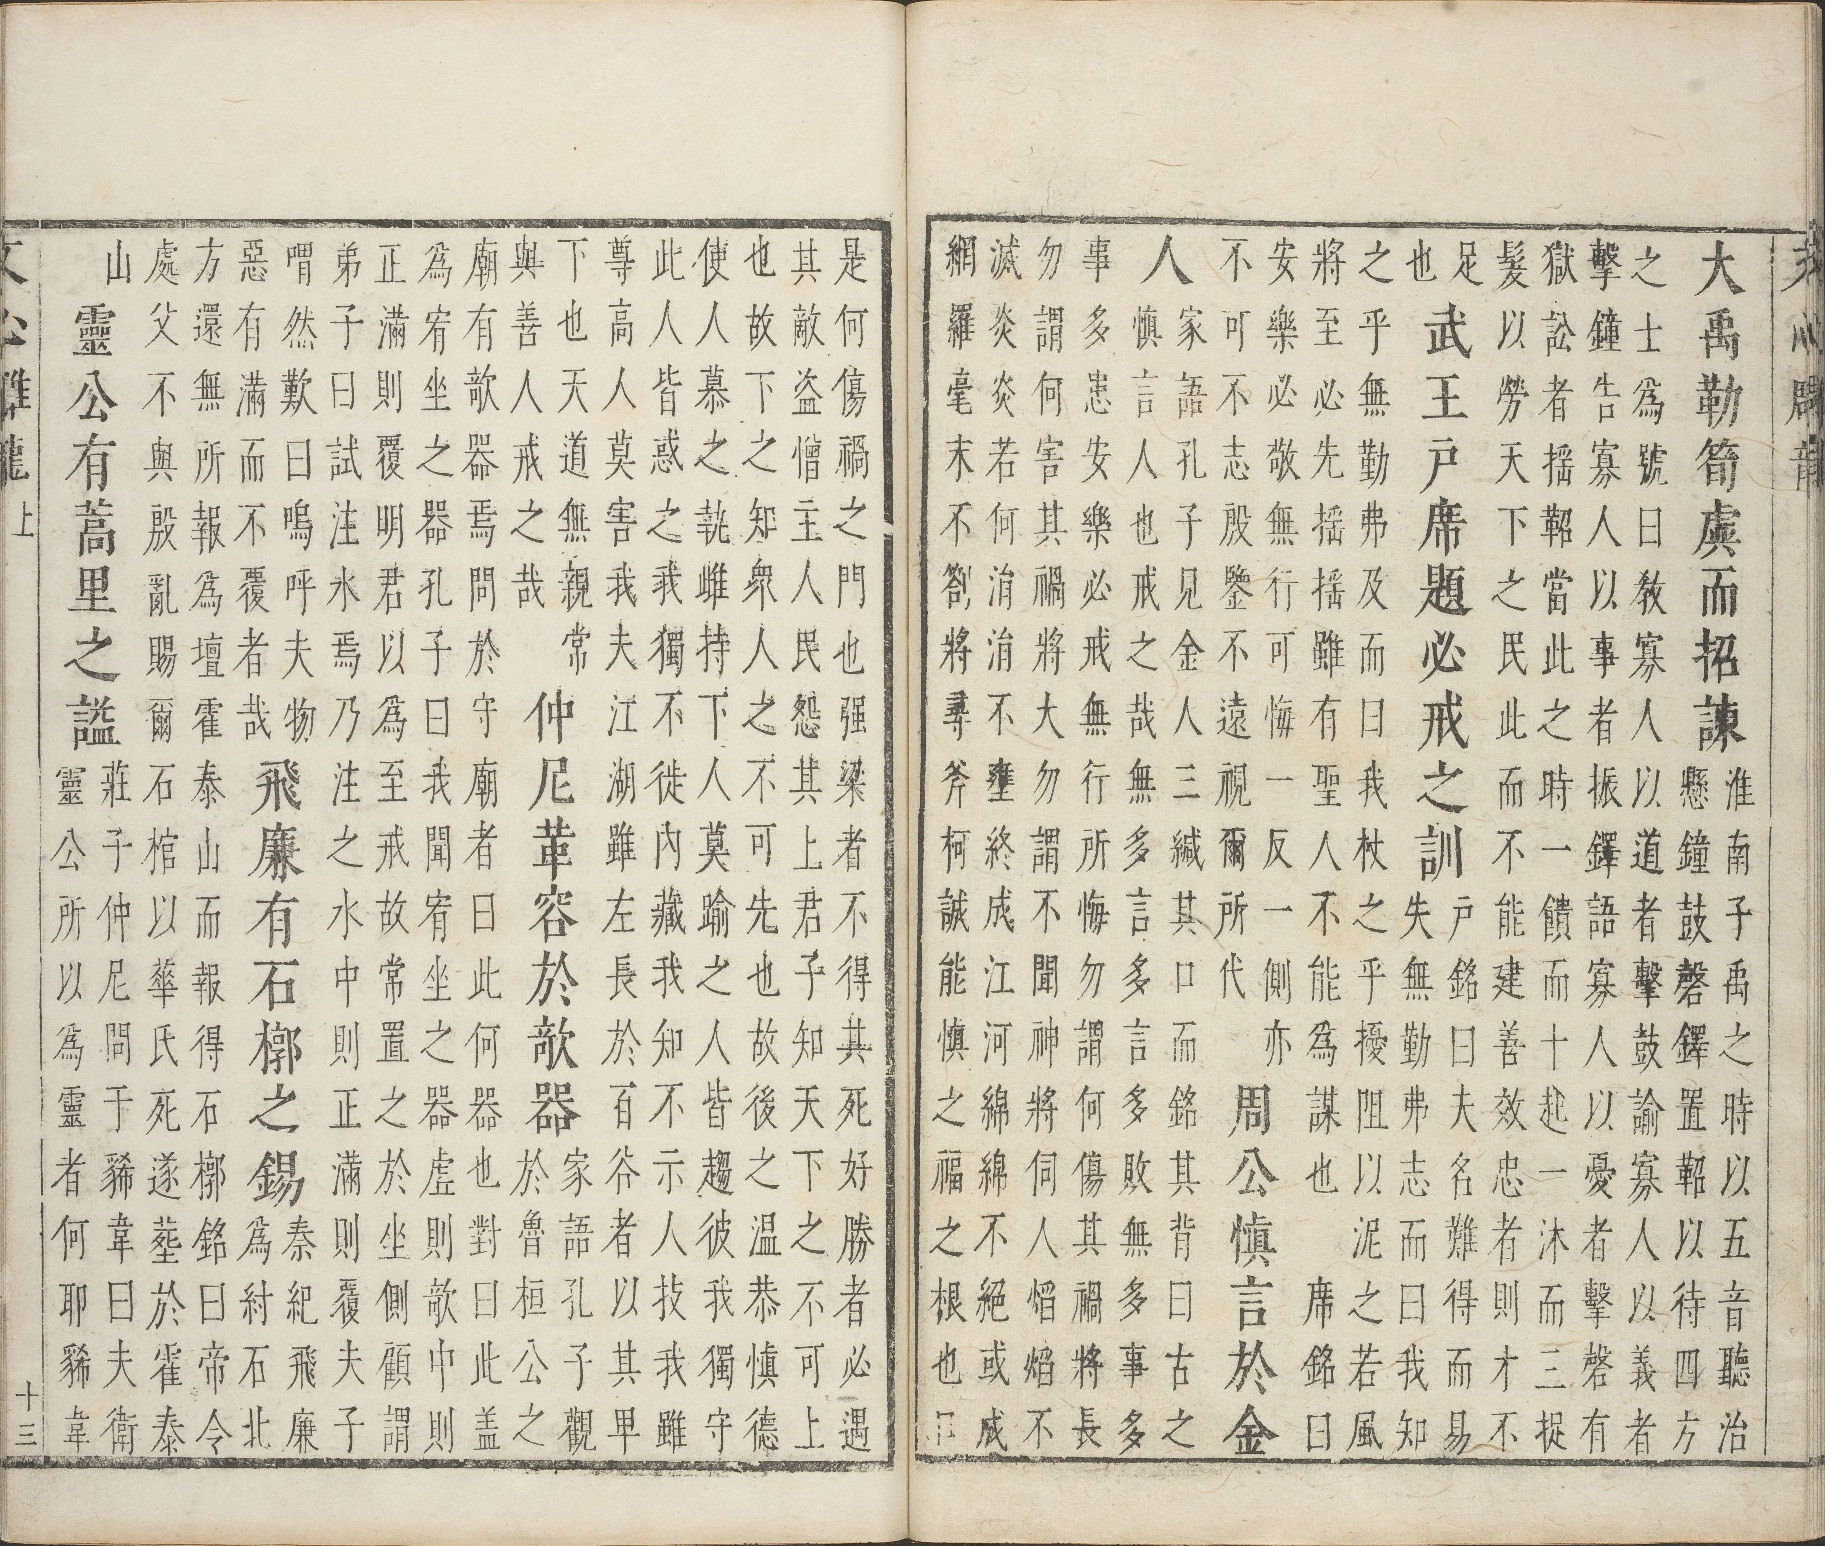 大禹勒筍虡而招諫
淮南子禹之時以五音聽治
懸鐘鼓磬鐸置鞀以待四方
之士為號曰敎寡人以道者擊鼓諭寡人以義者
擊鐘告寡人以事者振鐸語寡人以憂者擊磬有
獄訟者揺鞀當此之時一饋而十起一沐而三捉
髮以勞天下之民此而不能建善效忠者則才不
足
也
武王戸席題必戒之訓
戸銘曰夫名難得而易
失無勤弗志而曰我知
之乎無勤弗及而曰我杖之乎擾阻以泥之若風
將至必先揺揺雖有聖人不能為謀也 席銘曰
安樂必敬無行可悔一反一側亦
不可不志殷鑒不遠視爾所代
周公慎言於金
人
家語孔子見金人三緘其口而銘其背曰古之
慎言人也戒之哉無多言多言多敗無多事多
事多患安樂必戒無行所悔勿謂何傷其禍將長
勿謂何害其禍將大勿謂不聞神將伺人焰焰不
滅炎炎若何涓涓不壅終成江河綿綿不絕或成
網羅毫末不劄將尋斧柯誠能慎之福之根也曰
是何傷禍之門也强梁者不得其死好勝者必遇
其敵盗憎主人民怨其上君子知天下之不可上
也故下之知衆人之不可先也故後之温恭慎德
使人慕之執雌持下人莫踰之人皆趨彼我獨守
此人皆惑之我獨不徙内藏我知不示人技我雖
尊高人莫害我夫江湖雖左長於百谷者以其卑
下也天道無親常
與善人戒之哉
仲尼革容於欹器
家語孔子觀
於魯桓公之
廟有欹器焉問於守廟者曰此何器也對曰此盖
為宥坐之器孔子曰我聞宥坐之器虛則欹中則
正滿則覆明君以為至戒故常置之於坐側顧謂
弟子曰試注水焉乃注之水中則正滿則覆夫子
喟然歎曰嗚呼夫物
惡有滿而不覆者哉
飛廉有石槨之錫
秦紀飛廉
為紂石北
方還無所報為壇霍泰山而報得石槨銘曰帝令
處父不與殷亂賜爾石棺以華氏死遂塟於霍泰
山
靈公有蒿里之謚
莊子仲尼問于豨韋曰夫衛
靈公所以為靈者何耶豨韋
文心雕龍上
十三